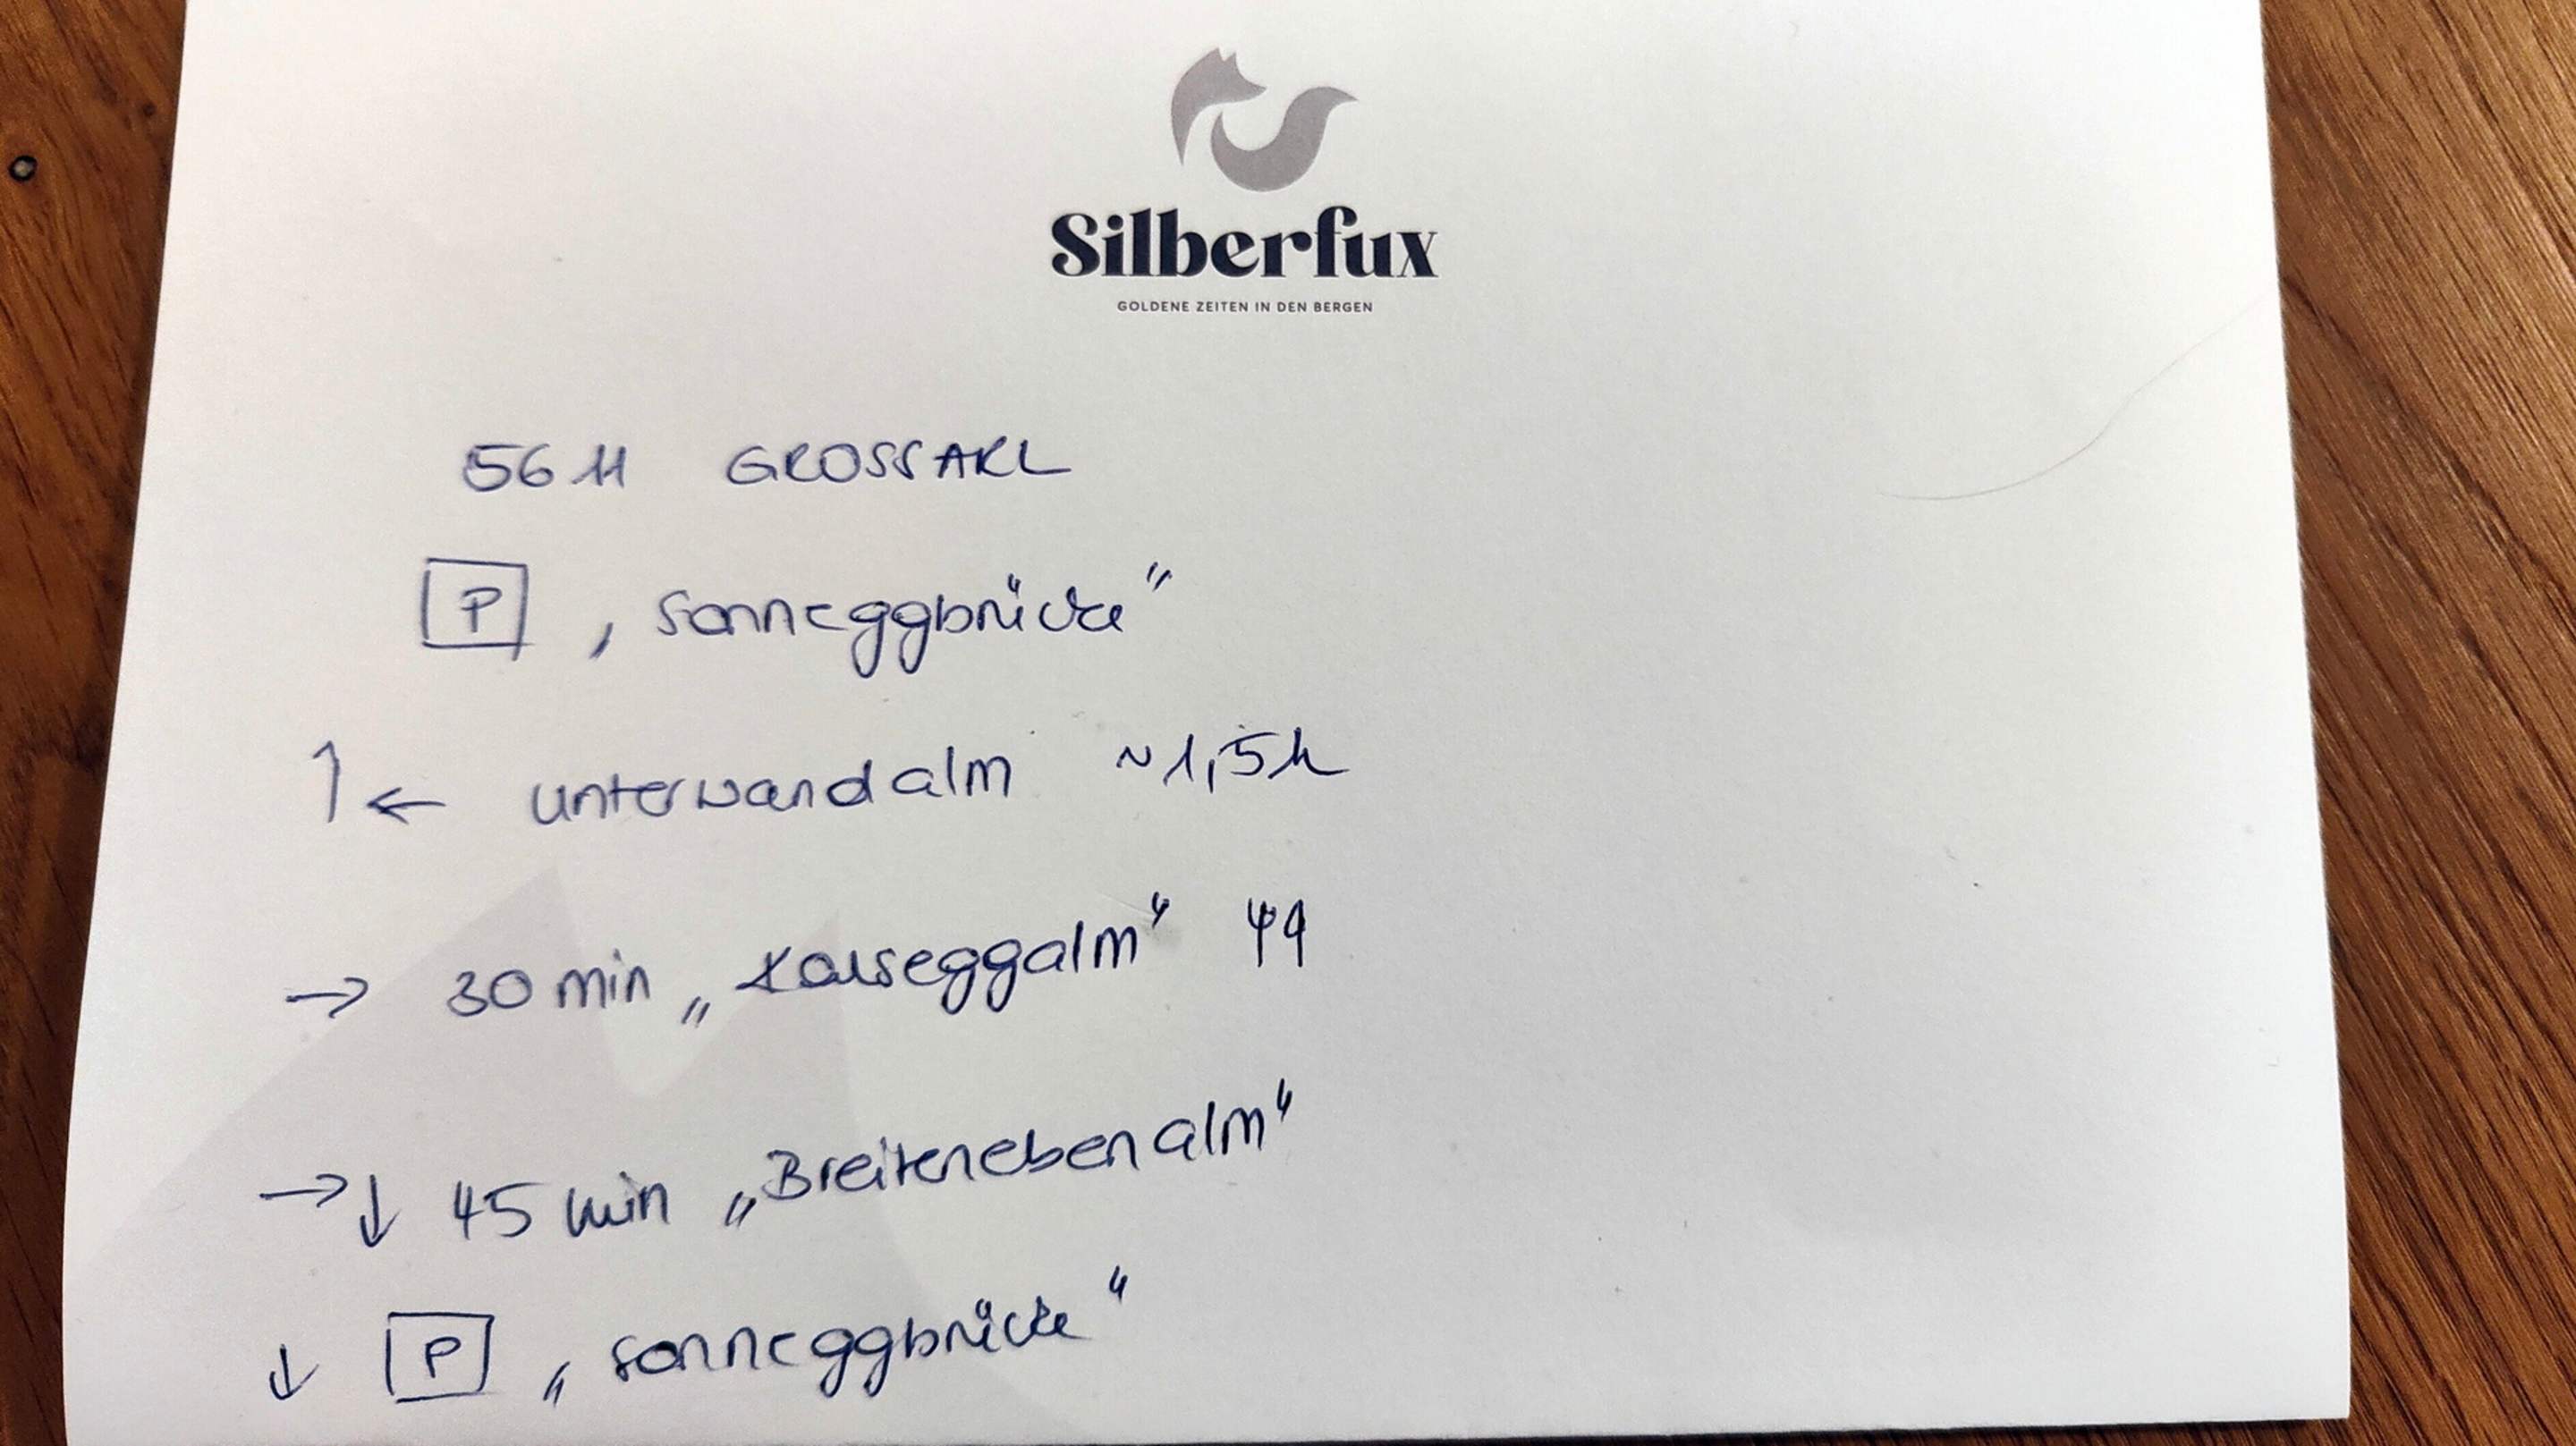 Silberfux
GOLDENE ZEITEN IN DEN BERGEN
5611 GROSSARL
P „Sonneggbrücke"
↑ ← unterwandalm ~1,5h
→ 30 min „Karseggalm"
→ ↓ 45 min „Breitenebenalm"
↓ P „Sonneggbrücke"